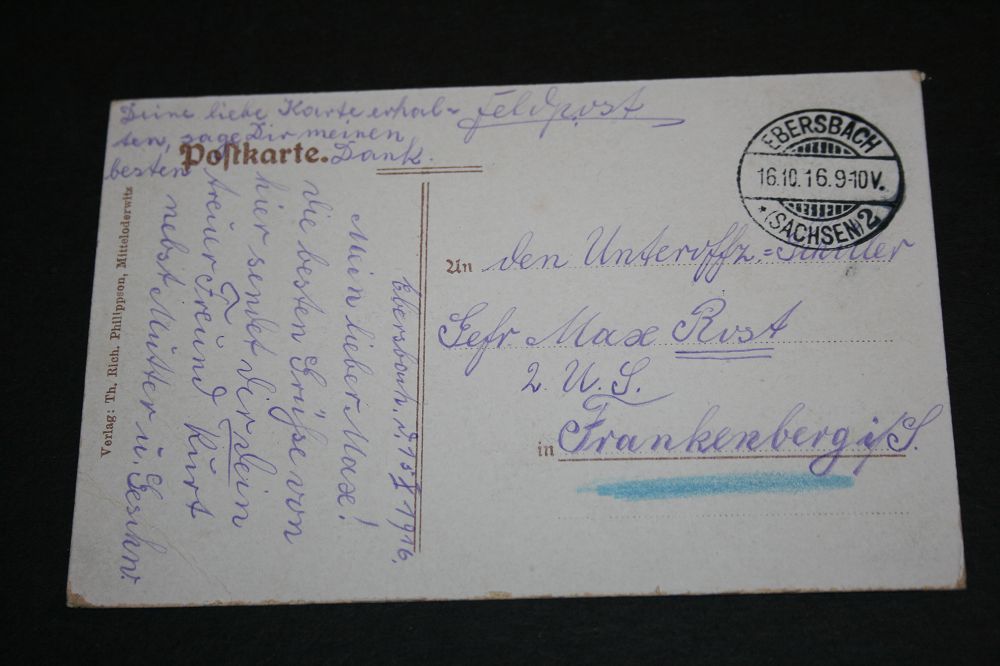 Deine liebe Karte erhal=
ten, sage Dir meinen
besten Dank.
Postkarte.
Feldpost
EBERSBACH
16.10.16.9-10V.
* (SACHSEN) 2
An den Unteroffz.=Schüler
Gefr Max Rost
2. U. S.
in Frankenberg i/S.
Ebersbach. d. 15 X 1916.
Mein lieber Max!
Die besten Grüße von
hier sendet dir dein
treuer Freund Kurt
nebst Mutter u. Geschw.
Verlag: Th. Rich. Philippson, Mitteloderwitz